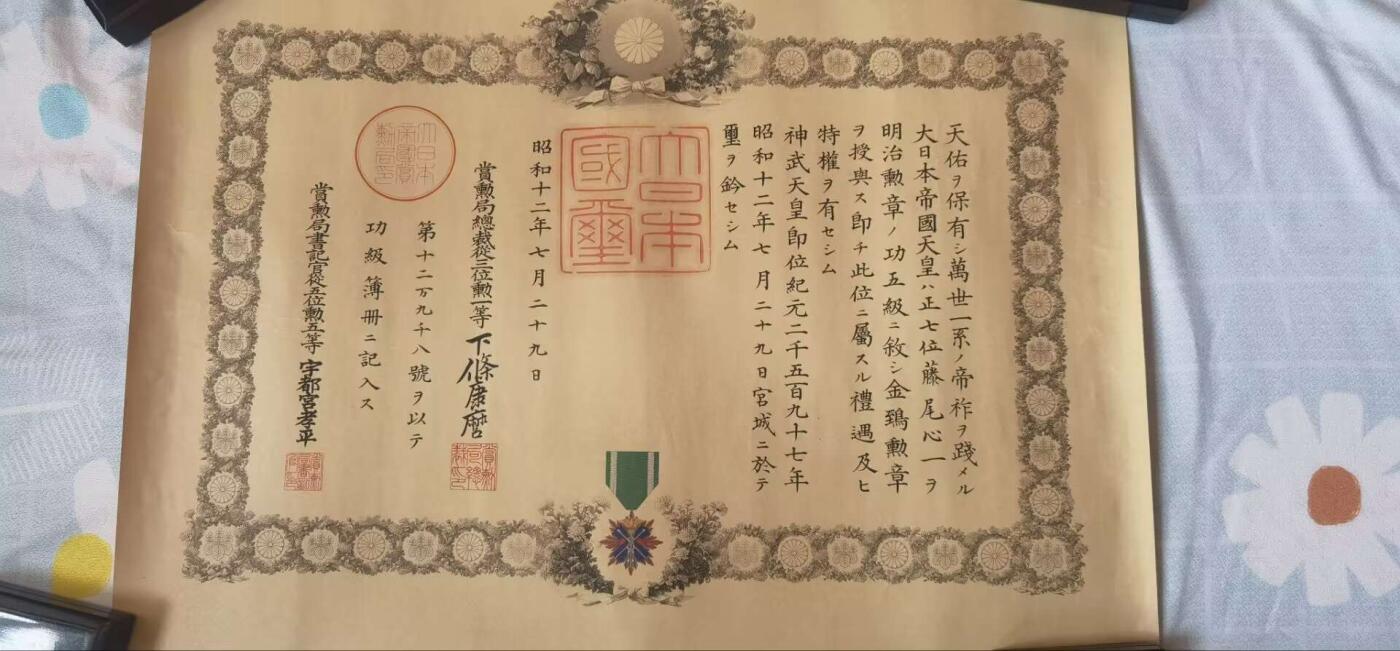 天佑ヲ保有シ萬世一系ノ帝祚ヲ踐メル
大日本帝國天皇ハ正七位藤尾心一ヲ
明治勲章ノ功五級ニ敘シ金鵄勲章
ヲ授與ス即チ此位ニ屬スル禮遇及ヒ
特權ヲ有セシム
神武天皇即位紀元二千五百九十七年
昭和十二年七月二十九日宮城ニ於テ
璽ヲ鈐セシム
大日本國璽
昭和十二年七月二十九日
賞勲局總裁從三位勲一等下條康麿
賞勲局總裁印
第十二万九千八號ヲ以テ
功級簿冊ニ記入ス
大日本帝國賞勲局印
賞勲局書記官從五位勲五等宇都宮孝平